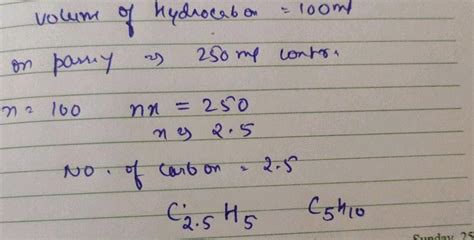 Volum of Hydrocarbon = 100ml
on passy => 250 ml contr.
n = 100 nx = 250
x => 2.5
No. of carbon = 2.5
C2.5H5 C5H10
Sunday, 25